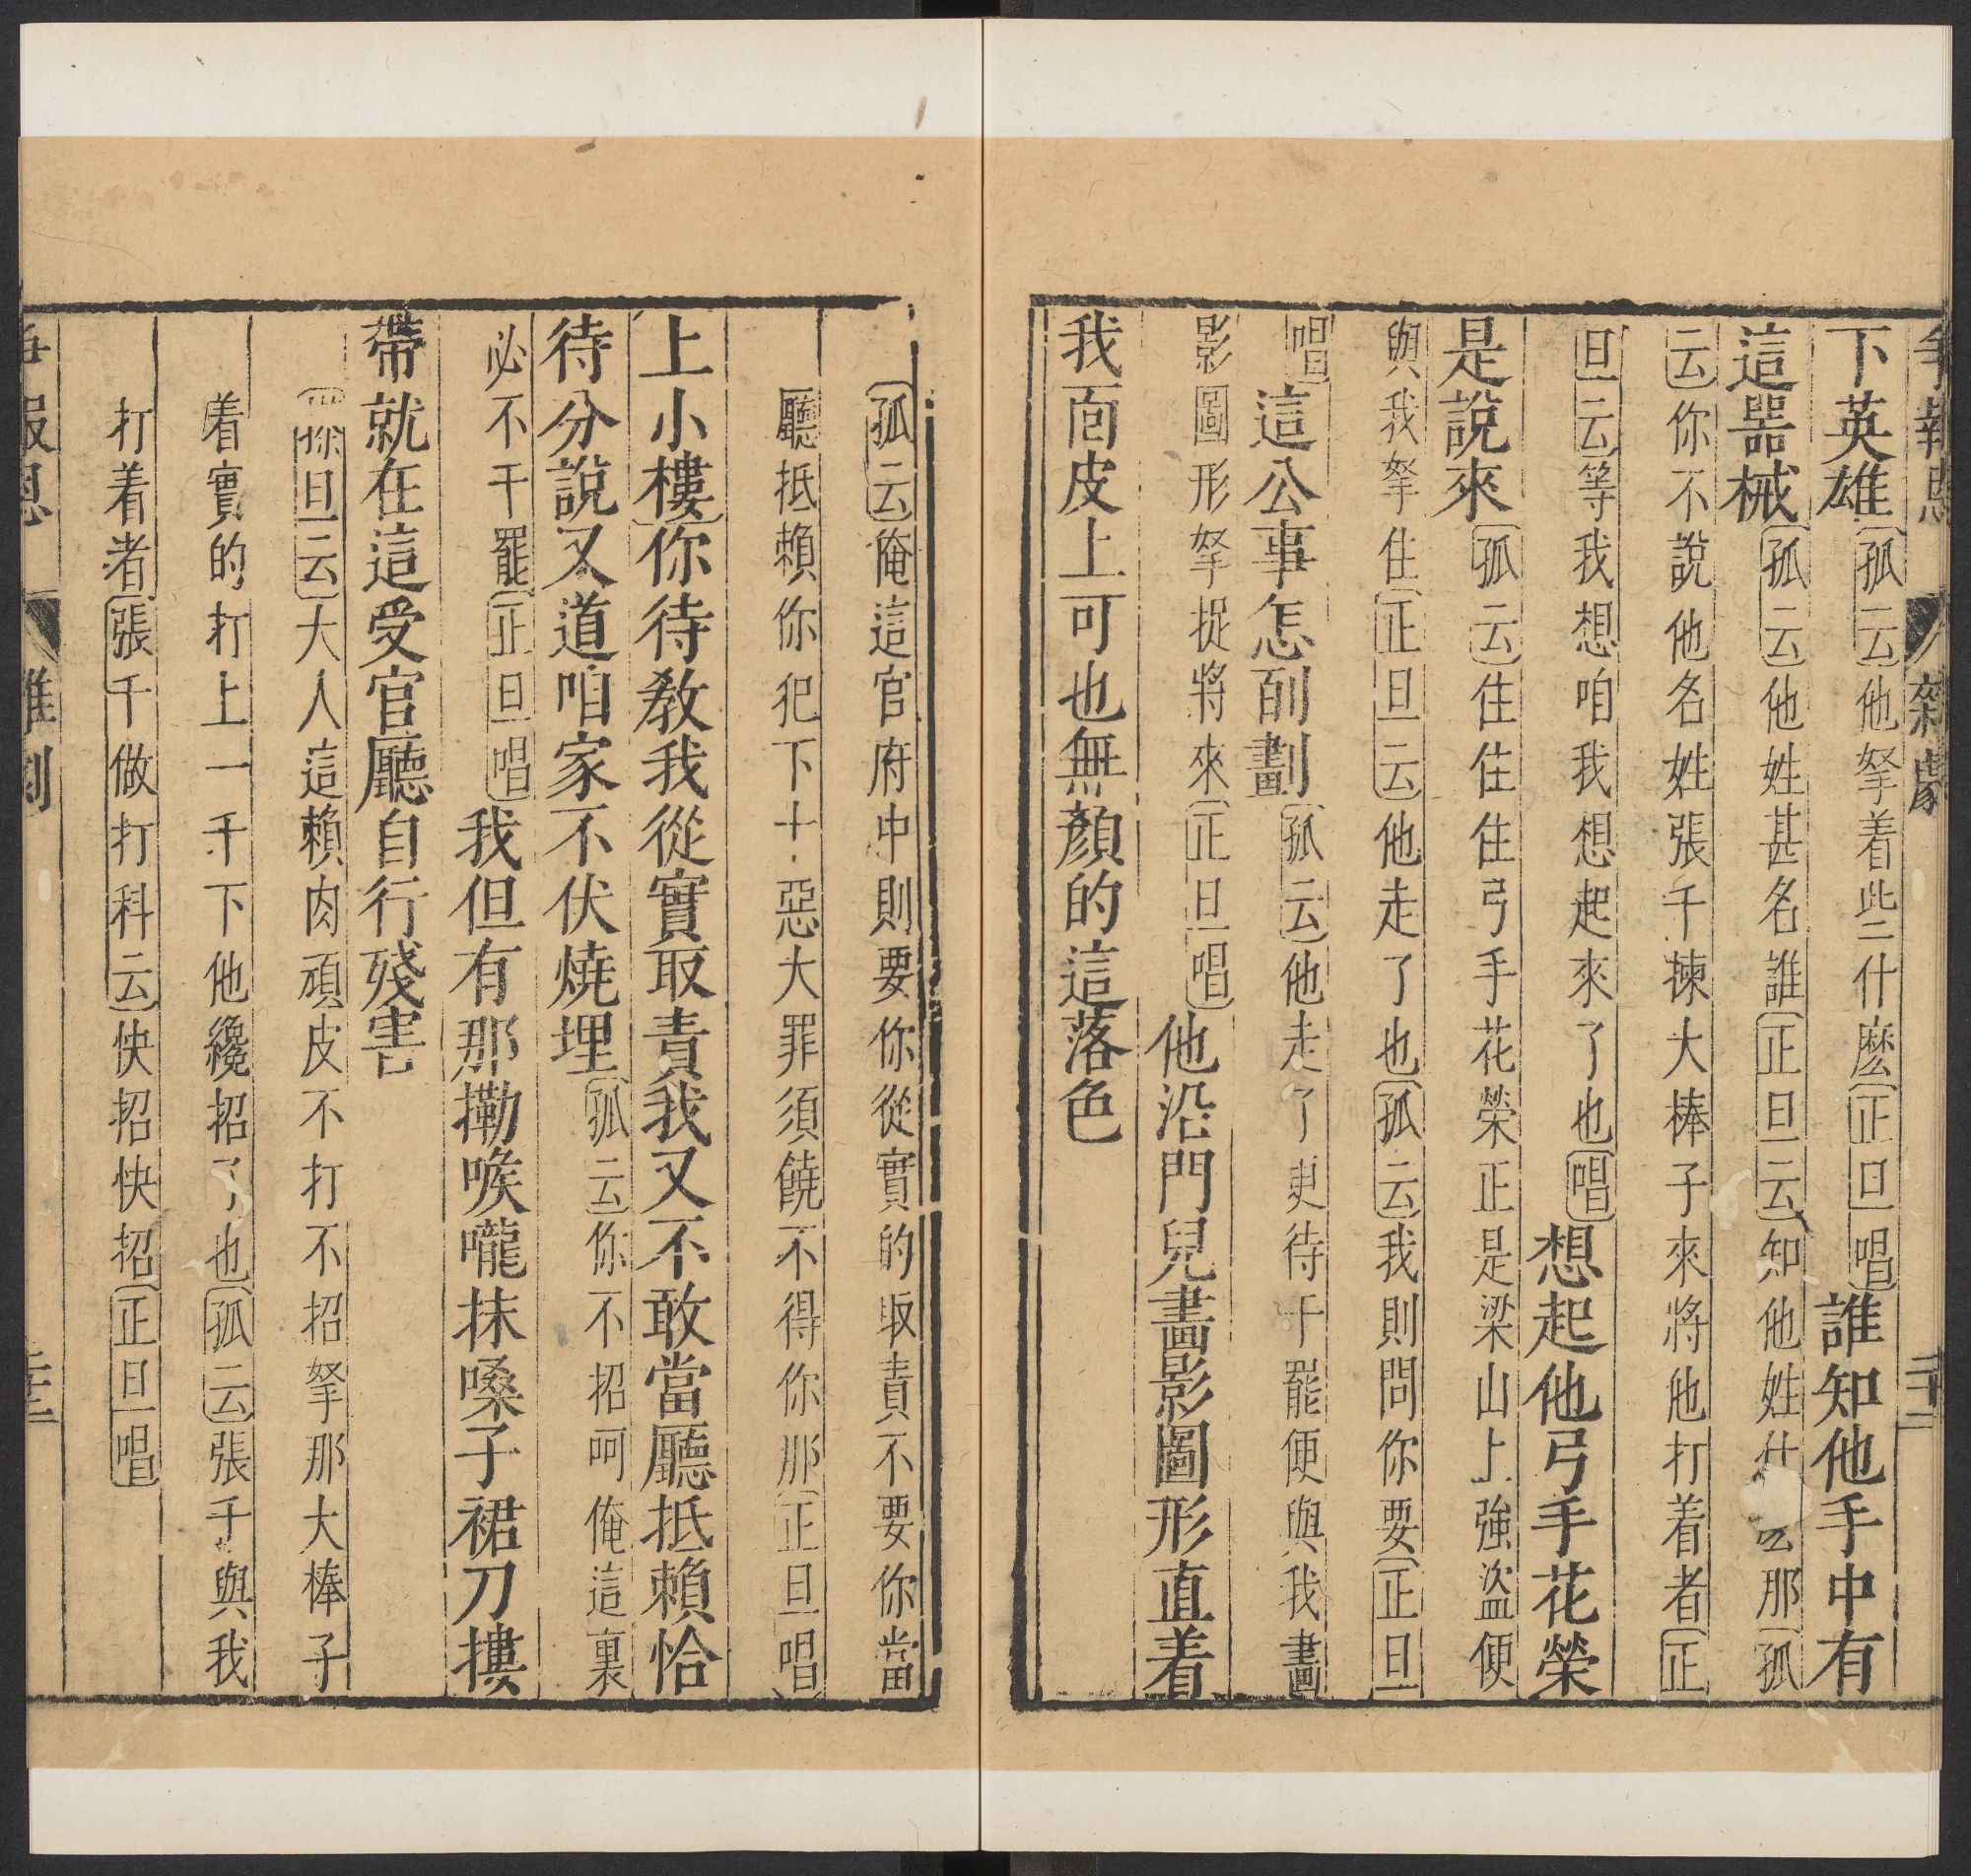 爭報恩 雜劇 二十二
下英雄〔孤云〕他拏着些什麽〔正旦唱〕誰知他手中有
這噐械〔孤云〕他姓甚名誰〔正旦云〕知他姓什麽那〔孤
云〕你不說他名姓張千揀大棒子來將他打着者〔正
旦云〕等我想咱我想起來了也〔唱〕想起他弓手花榮
是說來〔孤云〕住住住弓手花榮正是梁山上強盜便
與我拏住〔正旦云〕他走了也〔孤云〕我則問你要〔正旦
唱〕這公事怎刮劃〔孤云〕他走了更待干罷便與我畫
影圖形拏捉將來〔正旦唱〕他沿門兒畫影圖形直着
我面皮上可也無顏的這落色
〔孤云〕俺這官府中則要你從實的取責不要你當
廳抵賴你犯下十惡大罪須饒不得你那〔正旦唱〕
上小樓〔你待教我從實取責我又不敢當廳抵賴恰
待分說又道咱家不伏燒埋〔孤云〕你不招呵俺這裏
必不干罷〔正旦唱〕我但有那擻喉嚨抹嗓子裙刀摟
帶就在這受官廳自行殘害
旦云〕大人這賴肉頑皮不打不招拏那大棒子
着實的打上一千下他纔招了也〔孤云〕張千與我
打着者〔張千做打科云〕快招快招〔正旦唱〕
爭報恩 雜劇